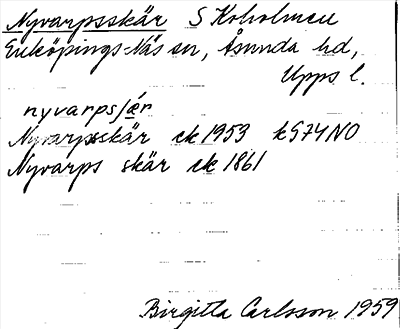 Nyvarpsskär S Koholmen
Enköpings-Näs sn, Åsunda hd,
Upps l.
nyvarpsʃǽr
Nyvarpsskär ek 1953 k574NO
Nyvarps skär ek 1861
Birgitta Carlsson 1959